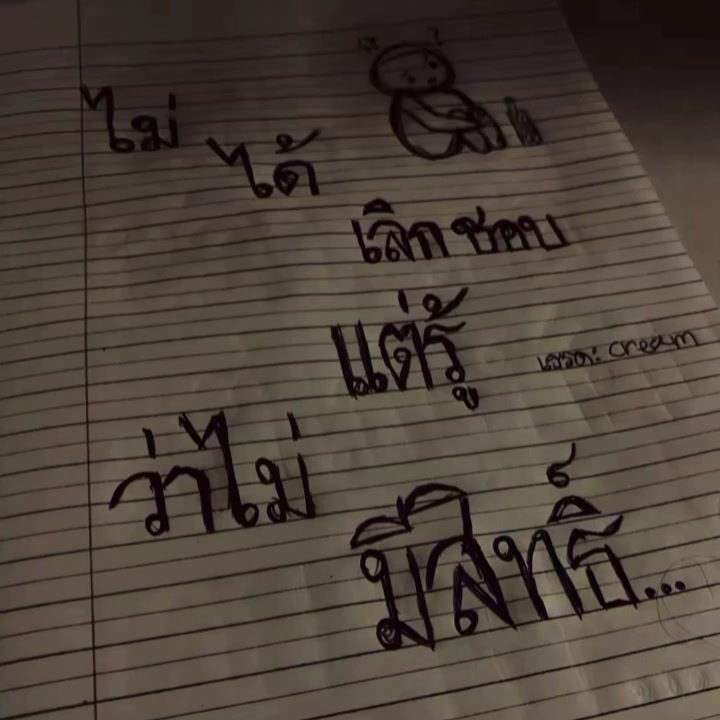 ไม่
ได้
เลิก ชอบ
แต่รู้
เครดิต: cream
ว่าไม่
มีสิทธิ์...